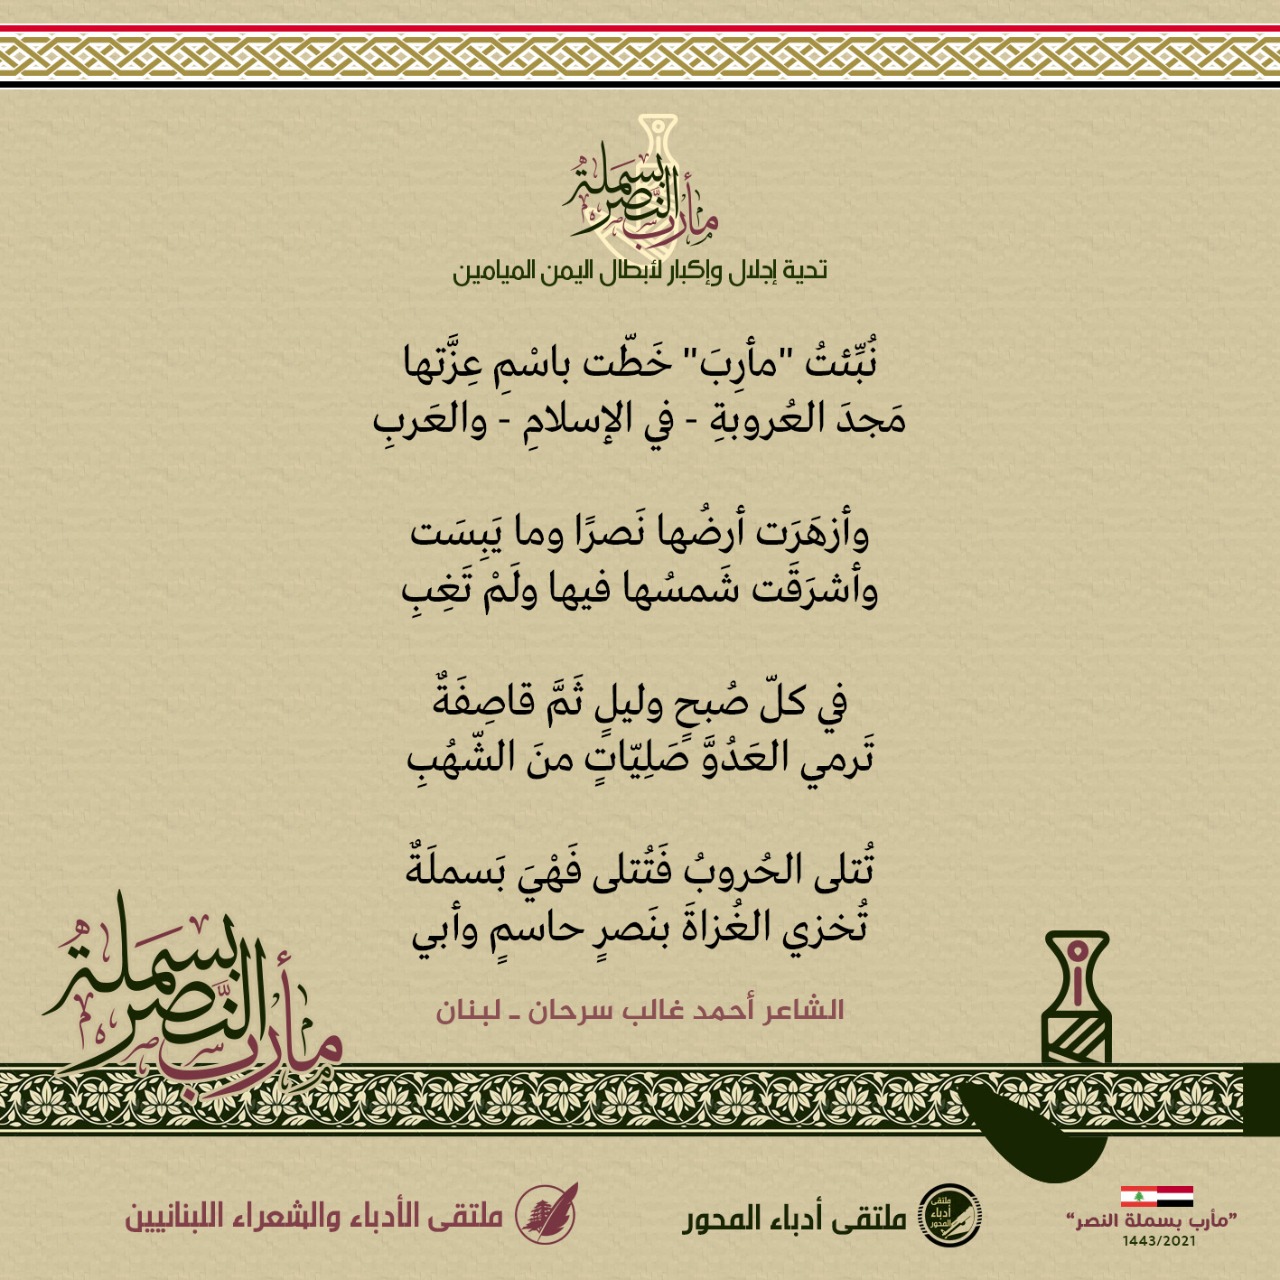 مأرب بسملة النصر
تحية إجلال وإكبار لأبطال اليمن الميامين
نُبِّئتُ "مأرِبَ" خَطّت باسْمِ عِزَّتها
مَجدَ العُروبةِ - في الإسلامِ - والعَربِ
وأزهَرَت أرضُها نَصرًا وما يَبِسَت
وأشرَقَت شَمسُها فيها ولَمْ تَغِبِ
في كلّ صُبحٍ وليلٍ ثَمَّ قاصِفَةٌ
تَرمي العَدُوَّ صَلِيّاتٍ منَ الشّهُبِ
تُتلى الحُروبُ فَتُتلى فَهْيَ بَسملَةٌ
تُخزي الغُزاةَ بنَصرٍ حاسمٍ وأبي
الشاعر أحمد غالب سرحان - لبنان
مأرب بسملة النصر
"مأرب بسملة النصر"
1443/2021
ملتقى أدباء المحور
ملتقى أدباء المحور
ملتقى الأدباء والشعراء اللبنانيين